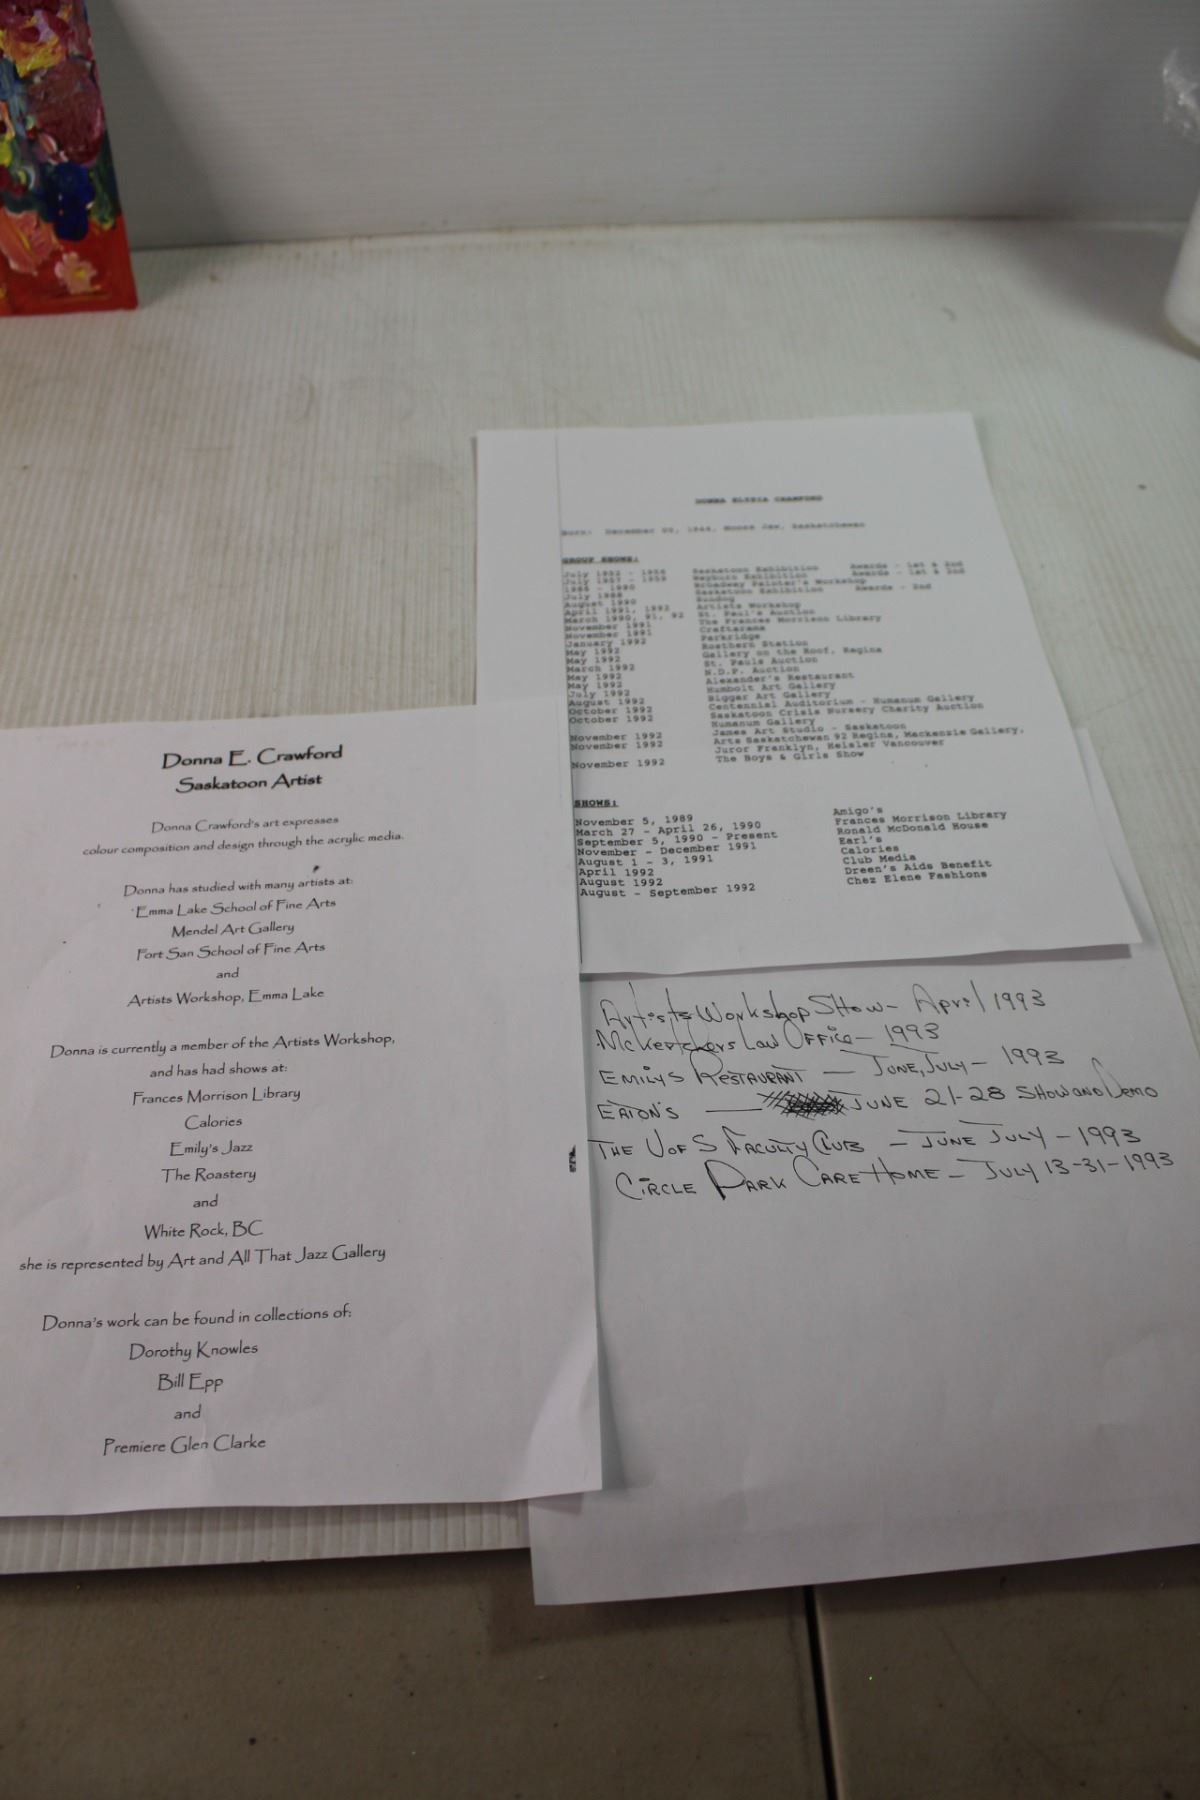 Donna E. Crawford
Saskatoon Artist
Donna Crawford's art expresses
colour composition and design through the acrylic media.
Donna has studied with many artists at:
Emma Lake School of Fine Arts
Mendel Art Gallery
Fort San School of Fine Arts
and
Artists Workshop, Emma Lake
Donna is currently a member of the Artists Workshop,
and has had shows at:
Frances Morrison Library
Calories
Emily's Jazz
The Roastery
and
White Rock, BC
she is represented by Art and All That Jazz Gallery
Donna's work can be found in collections of:
Dorothy Knowles
Bill Epp
and
Premiere Glen Clarke
DONNA CRAWFORD
Born: December Moose Jaw, Saskatchewan
GROUP SHOWS:
July Saskatoon Exhibition Awards - 1st & 2nd
July Weyburn Exhibition Awards - 1st & 2nd
- 1990 Broadway Painter's Workshop
July Saskatoon Exhibition Awards - 2nd
August 1990 Sundog
April 1991, 1992 Artists Workshop
March 1990, 91, 92 St. Paul's Auction
November 1991 The Frances Morrison Library
November 1991 Craftarama
January 1992 Parkridge
May 1992 Rosthern Station
May 1992 Gallery on the Roof, Regina
March 1992 St. Pauls Auction
May 1992 N.D.P. Auction
May 1992 Alexander's Restaurant
July 1992 Humbolt Art Gallery
August 1992 Biggar Art Gallery
October 1992 Centennial Auditorium - Humanum Gallery
October 1992 Saskatoon Crisis Nursery Charity Auction
Humanum Gallery
November 1992 James Art Studio - Saskatoon
November 1992 Arts Saskatchewan 92 Regina, Mackenzie Gallery,
Juror Franklyn, Heisler Vancouver
November 1992 The Boys & Girls Show
SHOWS:
November 5, 1989 Amigo's
March 27 - April 26, 1990 Frances Morrison Library
September 5, 1990 - Present Ronald McDonald House
November - December 1991 Earl's
August 1 - 3, 1991 Calories
April 1992 Club Media
August 1992 Dreen's Aids Benefit
August - September 1992 Chez Elene Fashions
Artists Workshop Show - April 1993
McKerchers Law Office - 1993
Emilys Restaurant - June, July - 1993
Eaton's - June 21-28 Show and Demo
The U of S Faculty Club - June July - 1993
Circle Park Care Home - July 13-31-1993